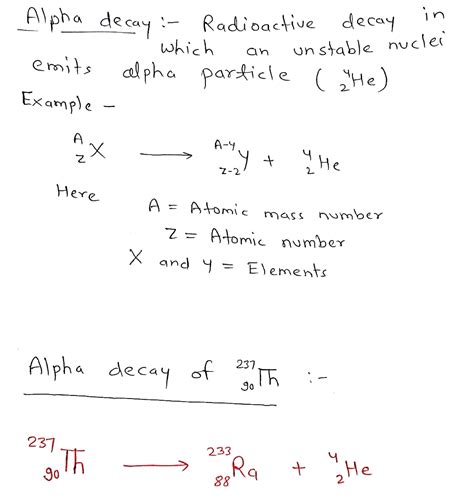 Alpha decay :- Radioactive decay in
which an unstable nuclei
emits alpha particle ( ⁴₂He)
Example -
ᴬ_Z X ⟶ ᴬ⁻⁴_Z-2 y + ⁴₂He
Here
A = Atomic mass number
Z = Atomic number
X and y = Elements
Alpha decay of ²³⁷₉₀Th :-
²³⁷₉₀Th ⟶ ²³³₈₈Ra + ⁴₂He